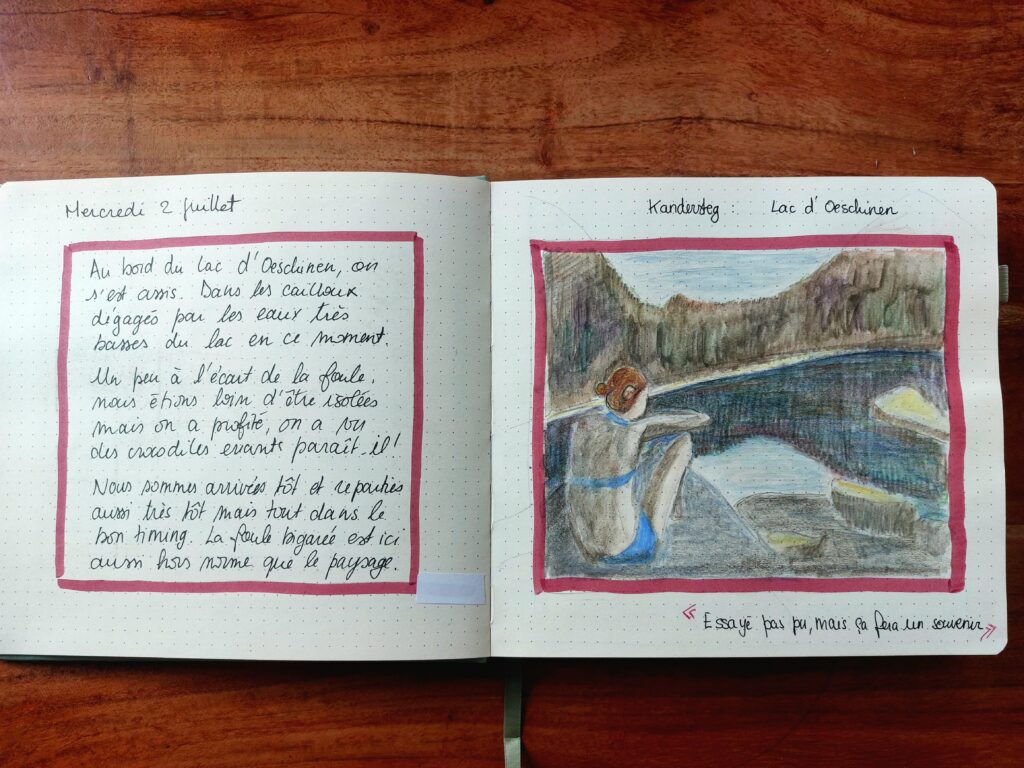 Mercredi 2 juillet
Au bord du lac d'Oeschinen, on
s'est assis. Dans les cailloux
dégagés par les eaux très
basses du lac en ce moment.
Un peu à l'écart de la foule,
nous étions loin d'être isolées
mais on a profité, on a vu
des crocodiles errants paraît-il!
Nous sommes arrivées tôt et reparties
aussi très tôt mais tout dans le
bon timing. La foule bigarée est ici
aussi hors norme que le paysage.
Kandersteg : Lac d'Oeschinen
« Essayé pas pu, mais ça fera un souvenir »